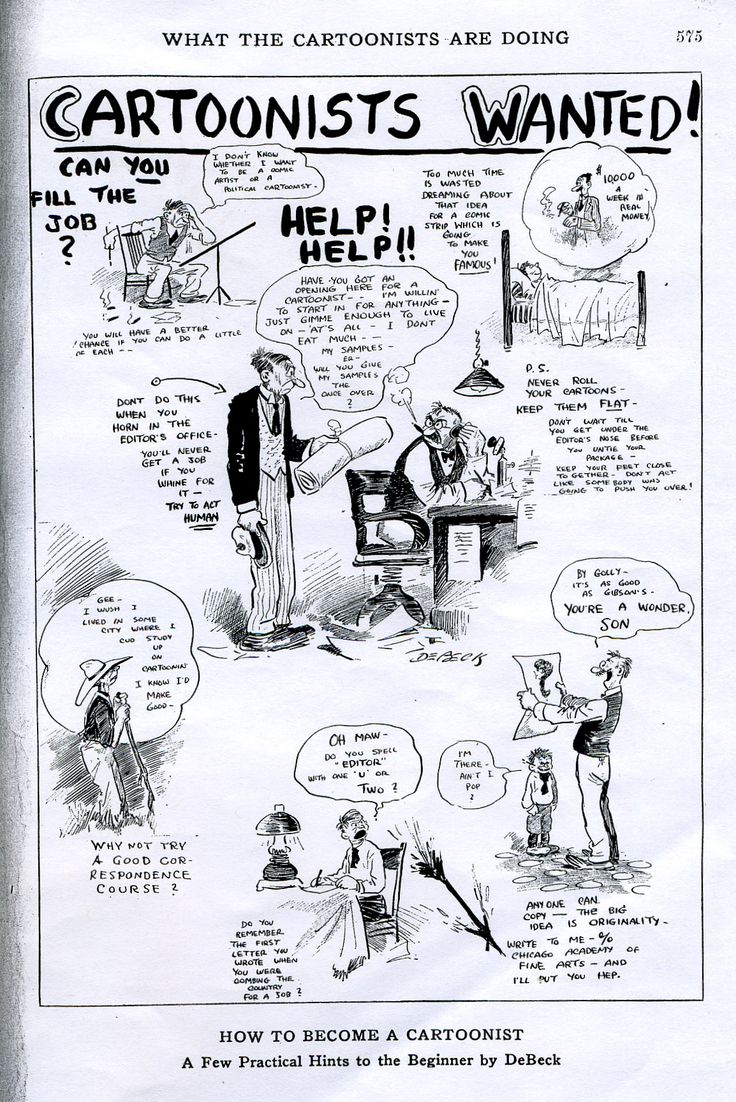 WHAT THE CARTOONISTS ARE DOING
575
CARTOONISTS WANTED!
CAN YOU
FILL THE
JOB
?
I DON'T KNOW
WHETHER I WANT
TO BE A COMIC
ARTIST OR A
POLITICAL CARTOONIST-
YOU WILL HAVE A BETTER
CHANCE IF YOU CAN DO A LITTLE
OF EACH --
HELP!
HELP!!
TOO MUCH TIME
IS WASTED
DREAMING ABOUT
THAT IDEA
FOR A COMIC
STRIP WHICH IS
GOING
TO MAKE
YOU
FAMOUS!
$10,000
A
WEEK IN
REAL
MONEY
HAVE YOU GOT AN
OPENING HERE FOR A
CARTOONIST-- I'M WILLIN'
TO START IN FOR ANYTHING-
JUST GIMME ENOUGH TO LIVE
ON -'AT'S ALL - I DON'T
EAT MUCH--
MY SAMPLES-
ER-
WILL YOU GIVE
MY SAMPLES
THE
ONCE OVER
?
DONT DO THIS
WHEN YOU
HORN IN THE
EDITOR'S OFFICE-
YOU'LL NEVER
GET A JOB
IF YOU
WHINE FOR
IT -
TRY TO ACT
HUMAN
P.S.
NEVER ROLL
YOUR CARTOONS-
KEEP THEM FLAT-
DON'T WAIT TILL
YOU GET UNDER THE
EDITOR'S NOSE BEFORE
YOU UNTIE YOUR
PACKAGE -
KEEP YOUR FEET CLOSE
TO GETHER - DON'T ACT
LIKE SOMEBODY WAS
GOING TO PUSH YOU OVER!
DEBECK
GEE-
I WUSH I
LIVED IN SOME
CITY WHERE I
CUD STUDY
UP
ON
CARTOONIN'
I KNOW I'D
MAKE
GOOD-
WHY NOT TRY
A GOOD COR-
RESPONDENCE
COURSE?
OH MAW-
DO YOU SPELL
"EDITOR"
WITH ONE 'U' OR
TWO?
DO YOU
REMEMBER
THE FIRST
LETTER YOU
WROTE WHEN
YOU WERE
COMBING THE
COUNTRY
FOR A JOB?
BY GOLLY-
IT'S AS GOOD
AS GIBSON'S-
YOU'RE A WONDER,
SON
I'M
THERE-
AIN'T I
POP
?
ANY ONE CAN
COPY - THE BIG
IDEA IS ORIGINALITY-
WRITE TO ME - %
CHICAGO ACADEMY OF
FINE ARTS - AND
I'LL PUT YOU HEP.
HOW TO BECOME A CARTOONIST
A Few Practical Hints to the Beginner by DeBeck